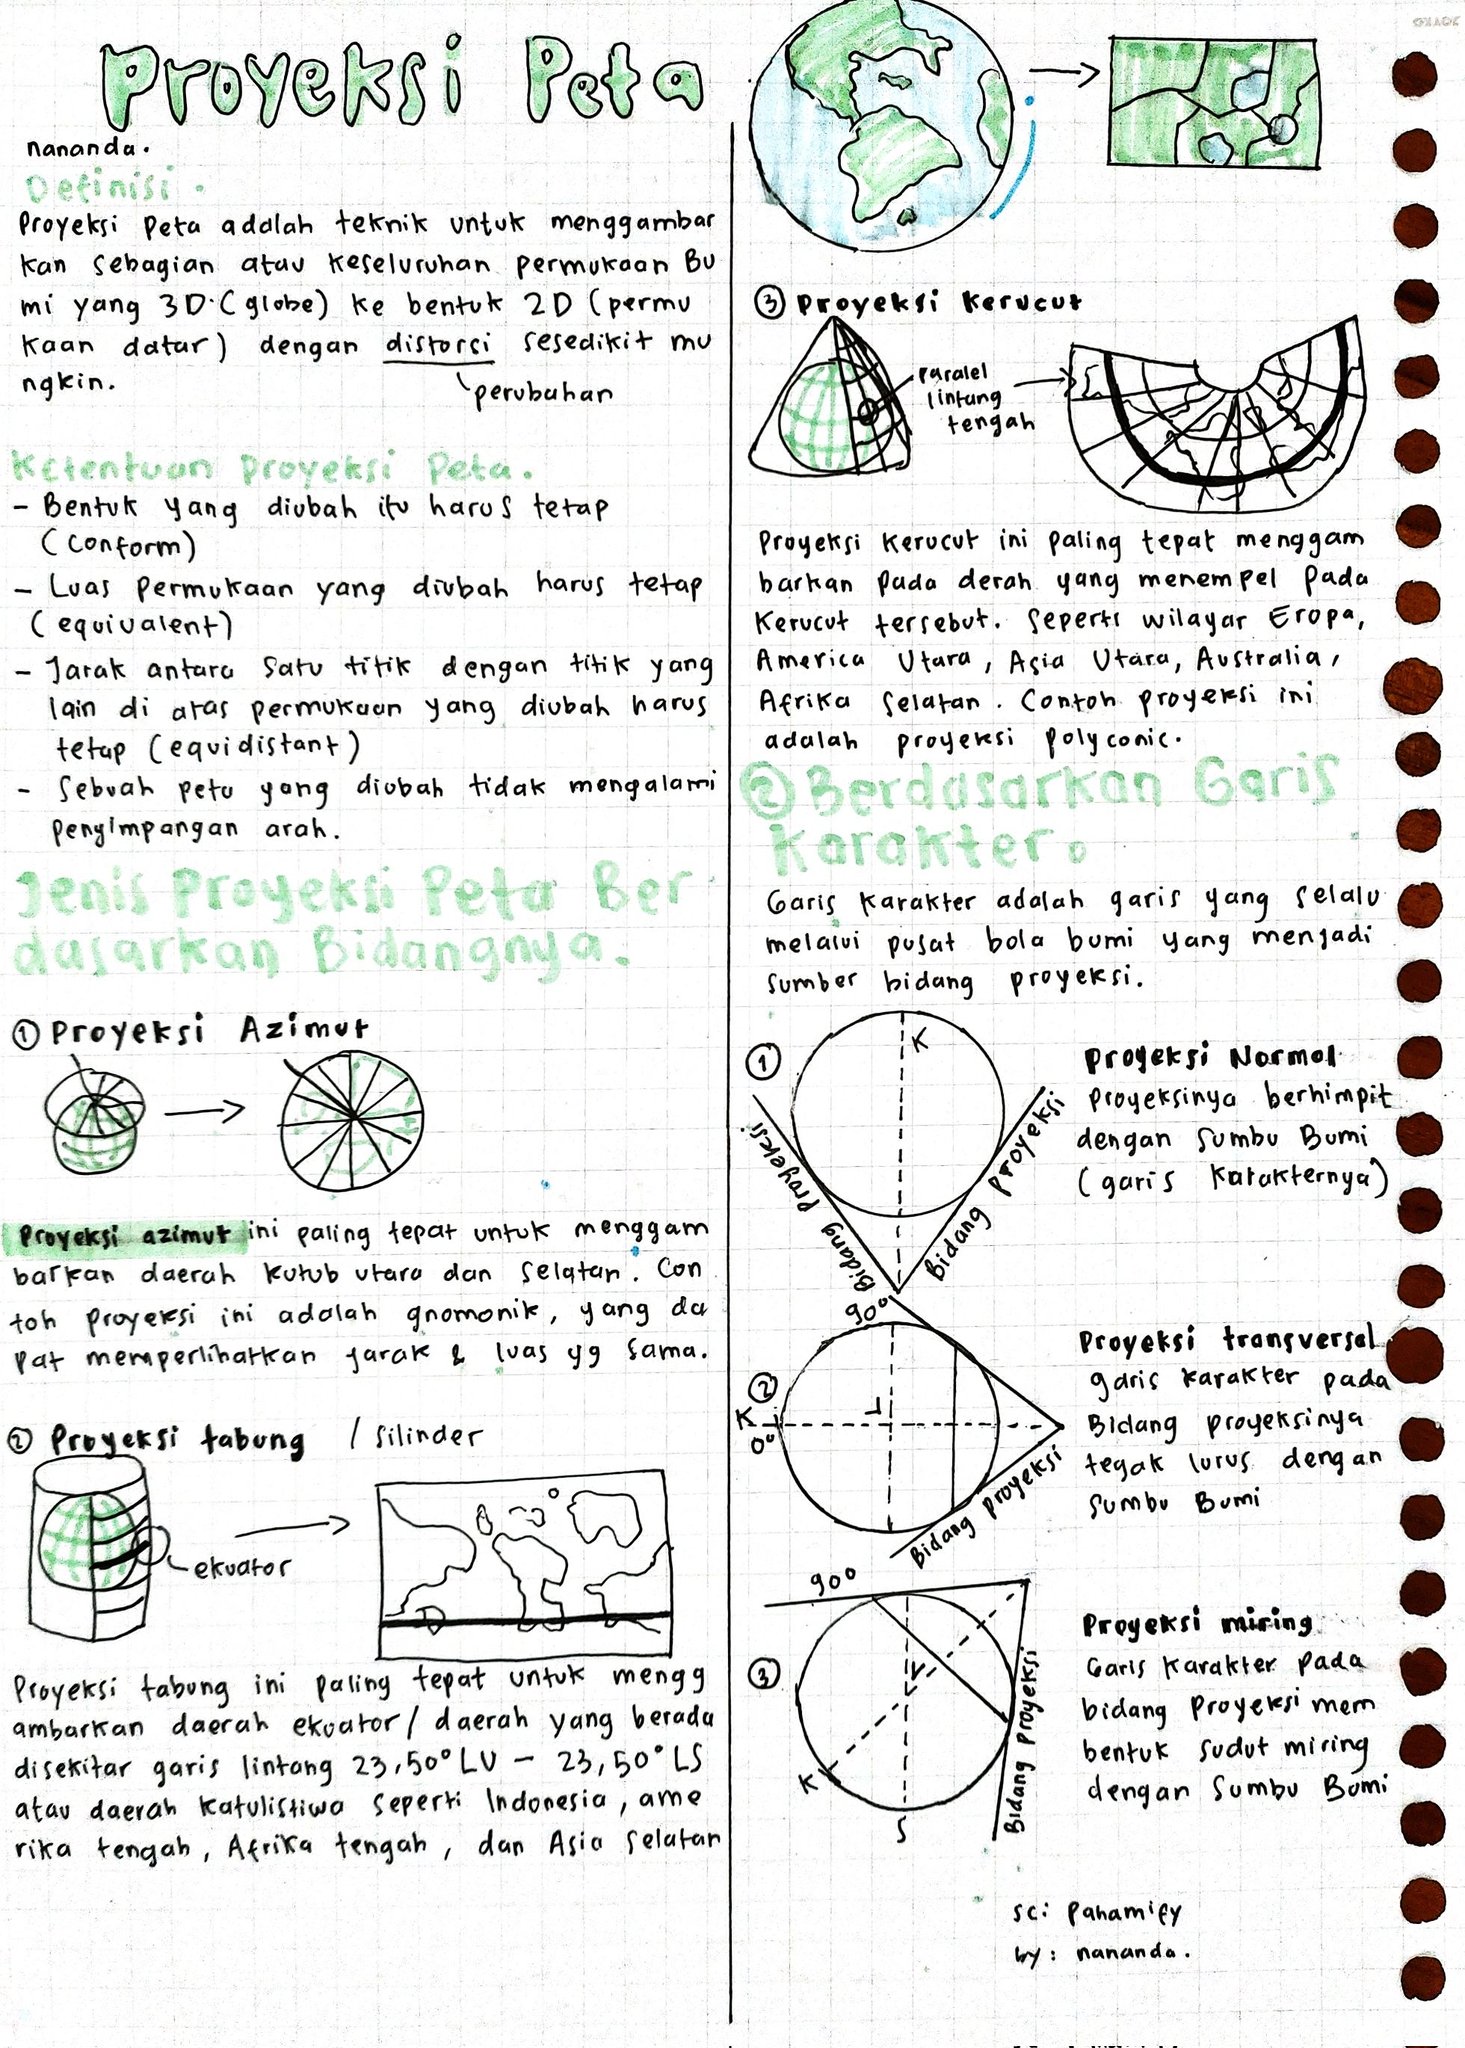 Proyeksi Peta
nananda.
Definisi.
Proyeksi Peta adalah teknik untuk menggambar
kan sebagian atau keseluruhan permukaan Bu
mi yang 3D (globe) ke bentuk 2D (permu
kaan datar) dengan distorsi sesedikit mu
ngkin.
perubahan
Ketentuan Proyeksi Peta.
- Bentuk yang diubah itu harus tetap
(conform)
- Luas permukaan yang diubah harus tetap
(equivalent)
- Jarak antara satu titik dengan titik yang
lain di atas permukaan yang diubah harus
tetap (equidistant)
- Sebuah peta yang diubah tidak mengalami
penyimpangan arah.
Jenis Proyeksi Peta Ber
dasarkan Bidangnya.
1 Proyeksi Azimut
Proyeksi azimut ini paling tepat untuk menggam
barkan daerah kutub utara dan selatan. Con
toh proyeksi ini adalah gnomonik, yang da
pat memperlihatkan jarak & luas yg sama.
2 Proyeksi tabung / silinder
ekuator
Proyeksi tabung ini paling tepat untuk mengg
ambarkan daerah ekuator/daerah yang berada
disekitar garis lintang 23,50° LU - 23,50° LS
atau daerah katulistiwa seperti Indonesia, ame
rika tengah, Afrika tengah, dan Asia selatan
3 Proyeksi Kerucut
paralel
lintang
tengah
Proyeksi kerucut ini paling tepat menggam
barkan pada derah yang menempel pada
kerucut tersebut. seperti wilayar Eropa,
America Utara, Asia Utara, Australia,
Afrika selatan. Contoh proyeksi ini
adalah proyeksi polyconic.
2 Berdasarkan Garis
Karakter.
Garis karakter adalah garis yang selalu
melalui pusat bola bumi yang menjadi
sumber bidang proyeksi.
1
K
Bidang Proyeksi
Bidang Proyeksi
Proyeksi Normal
Proyeksinya berhimpit
dengan sumbu Bumi
(garis karakternya)
90°
2
K
0°
Bidang Proyeksi
Proyeksi transversal
garis karakter pada
Bidang proyeksinya
tegak lurus dengan
sumbu Bumi
90°
3
K
S
Bidang Proyeksi
Proyeksi miring
Garis karakter pada
bidang Proyeksi mem
bentuk sudut miring
dengan Sumbu Bumi
sc: Pahamify
by: nananda.